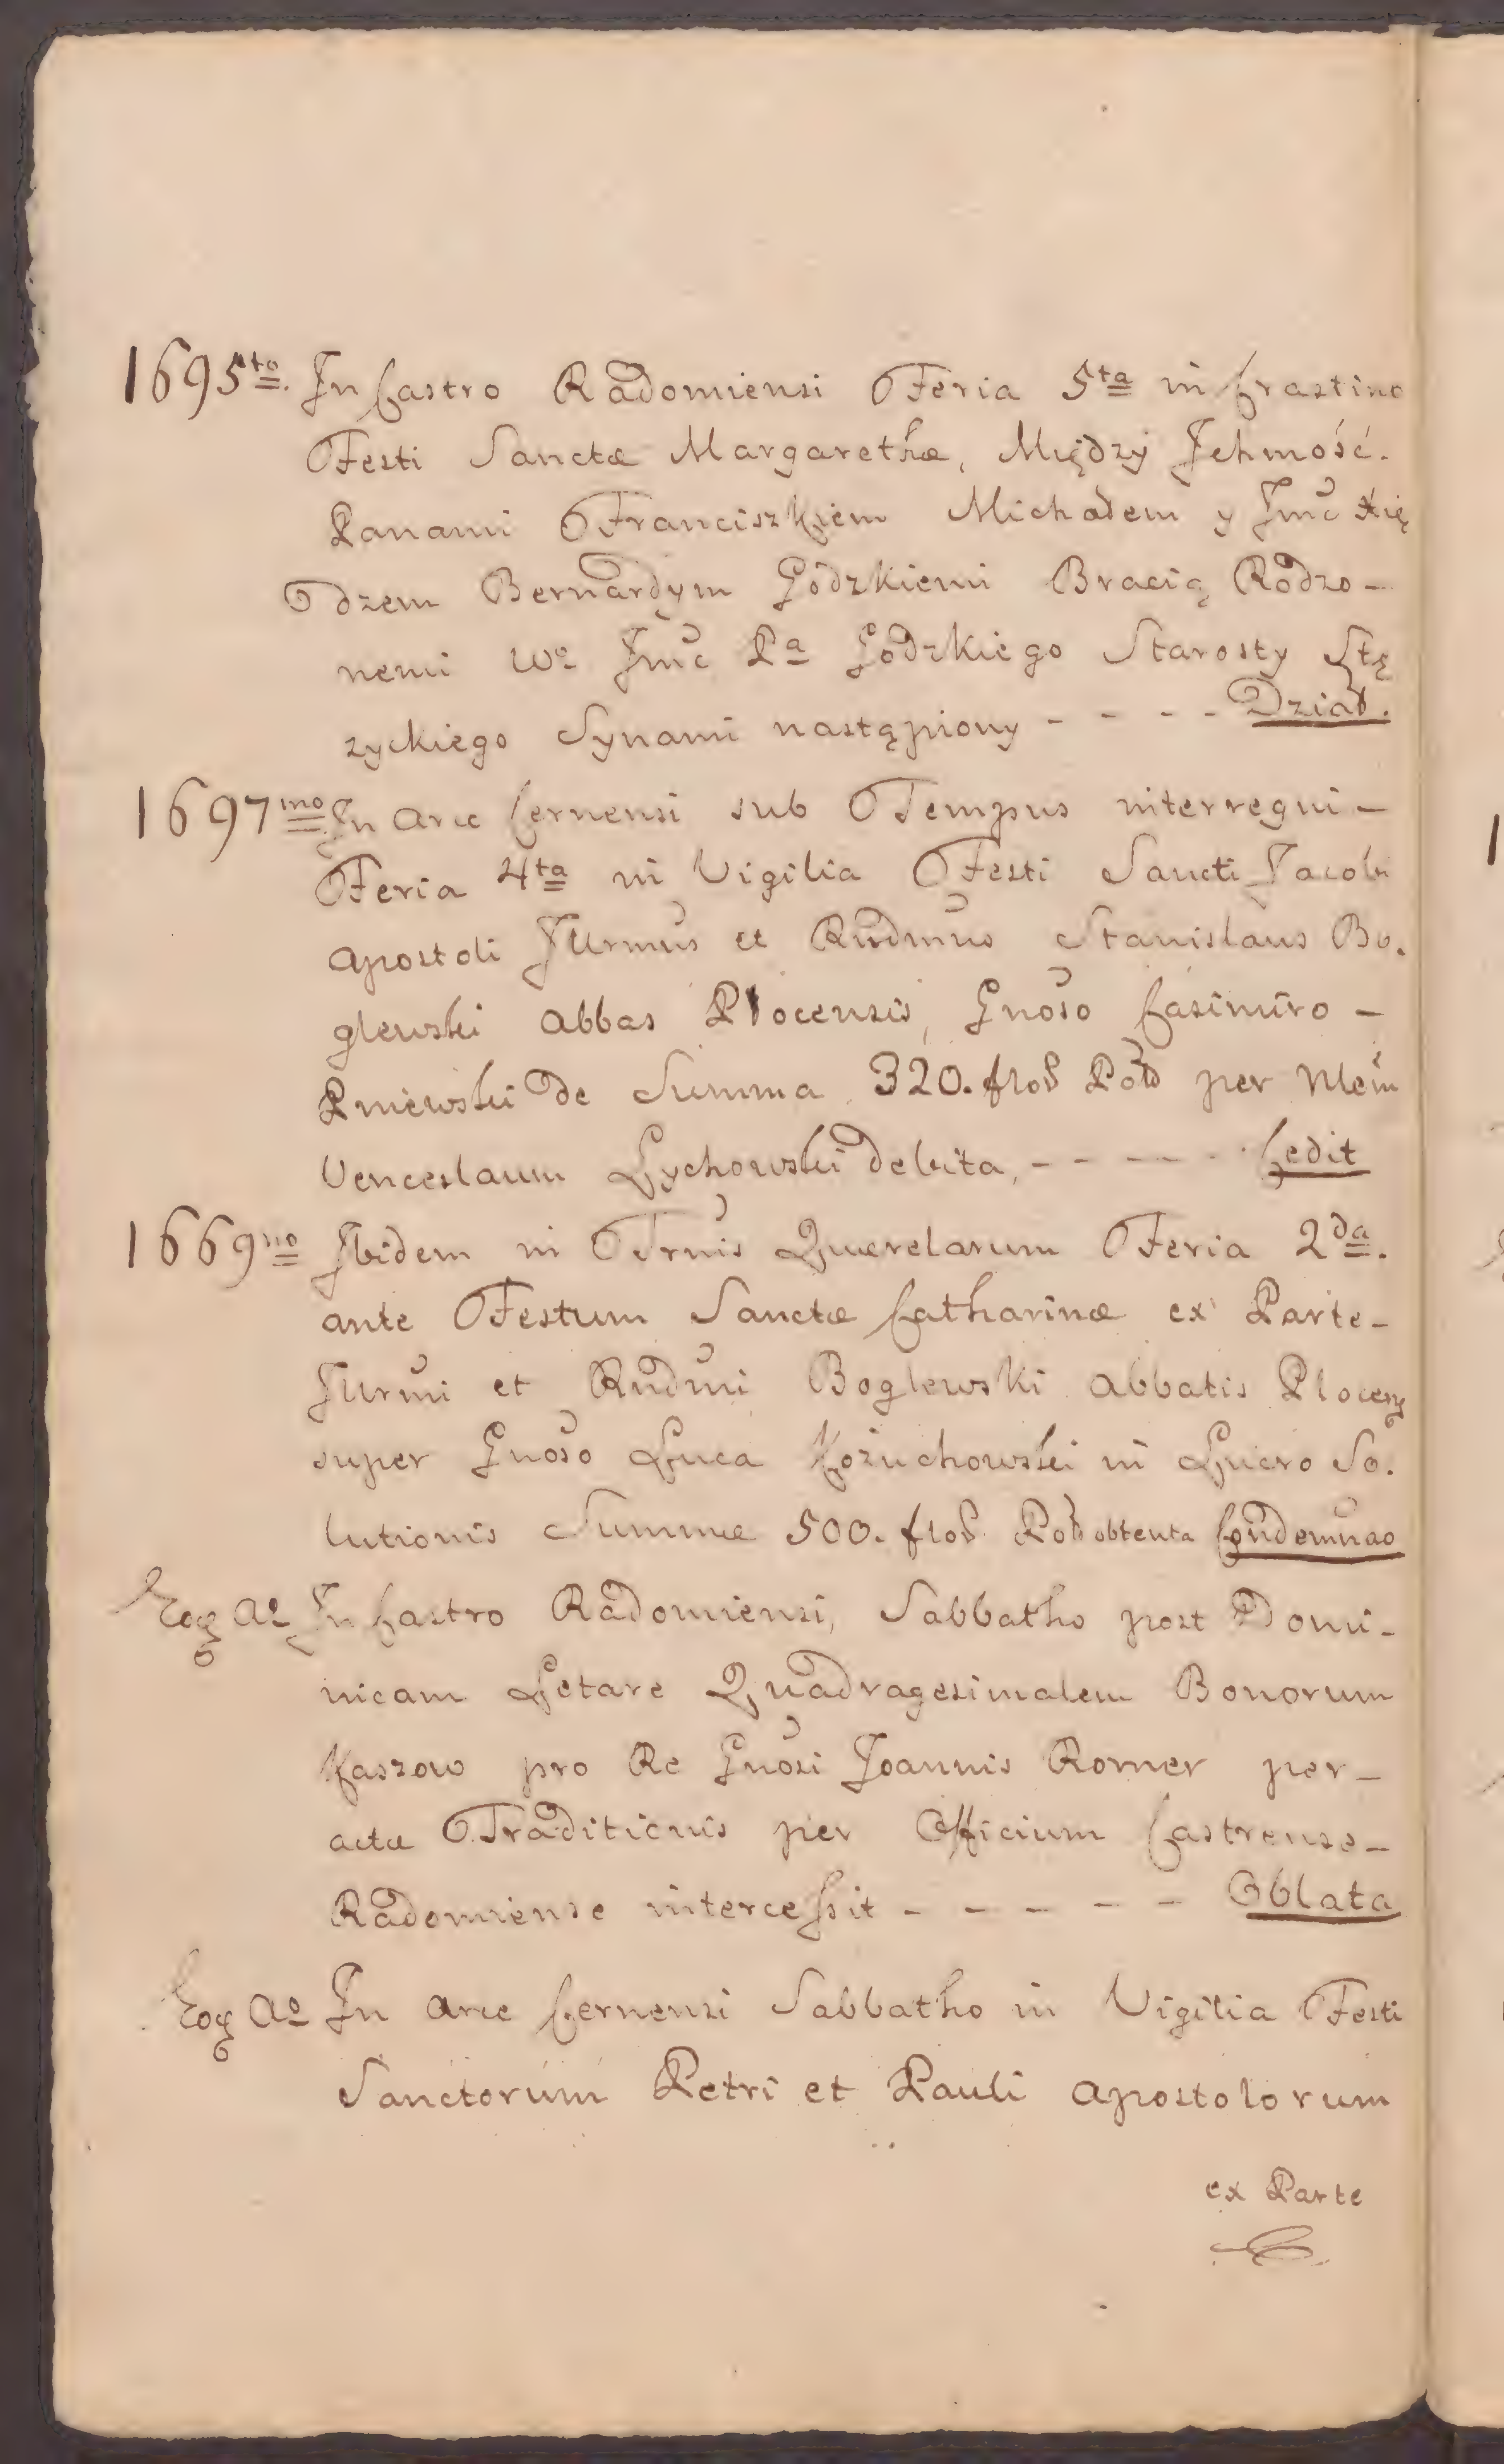 1695to. In Castro Radomiensi Feria 5ta in Crastino
Festi Sanctæ Margarethæ, Między Jchmość.
Panami Franciszkiem Michałem y Jmć Xię
dzem Bernardym Godzkiemi Bracią Rodzo-
nemi Wo Jmć Pa Godzkiego Starosty Stę
zyckiego Synami nastąpiony - - - - Dział.
1697mo In Arce Cernensi sub Tempus interregni-
Feria 4ta in Vigilia Festi Sancti Jacobi
Apostoli Jllrmus et Rndmus Stanislaus Bo.
glewski Abbas Plocensis, Gnoso Casimiro -
Pniewski de Summa 320. flor Pol per Mem
Venceslaum Lychowski debita, - - - - - Cedit
1669no Jbidem in Trnis Querelarum Feria 2da.
ante Festum Sanctæ Catharinæ ex Parte-
Jllrmi et Rndmi Boglewski Abbatis Plocens
super Gnoso Luca Kożuchowski in Lucro So.
lutionis Summæ 500. flor. Pol obtenta Condemnao
Eoq Ao In Castro Radomiensi, Sabbatho post Domi-
nicam Letare Quadragesimalem Bonorum
Kaszow pro Re Gnosi Joannis Romer per-
actæ Traditionis per Officium Castrense-
Radomiense intercessit - - - - - Oblata
Eoq Ao In Arce Cernensi Sabbatho in Vigilia Festi
Sanctorum Petri et Pauli Apostolorum
ex Parte